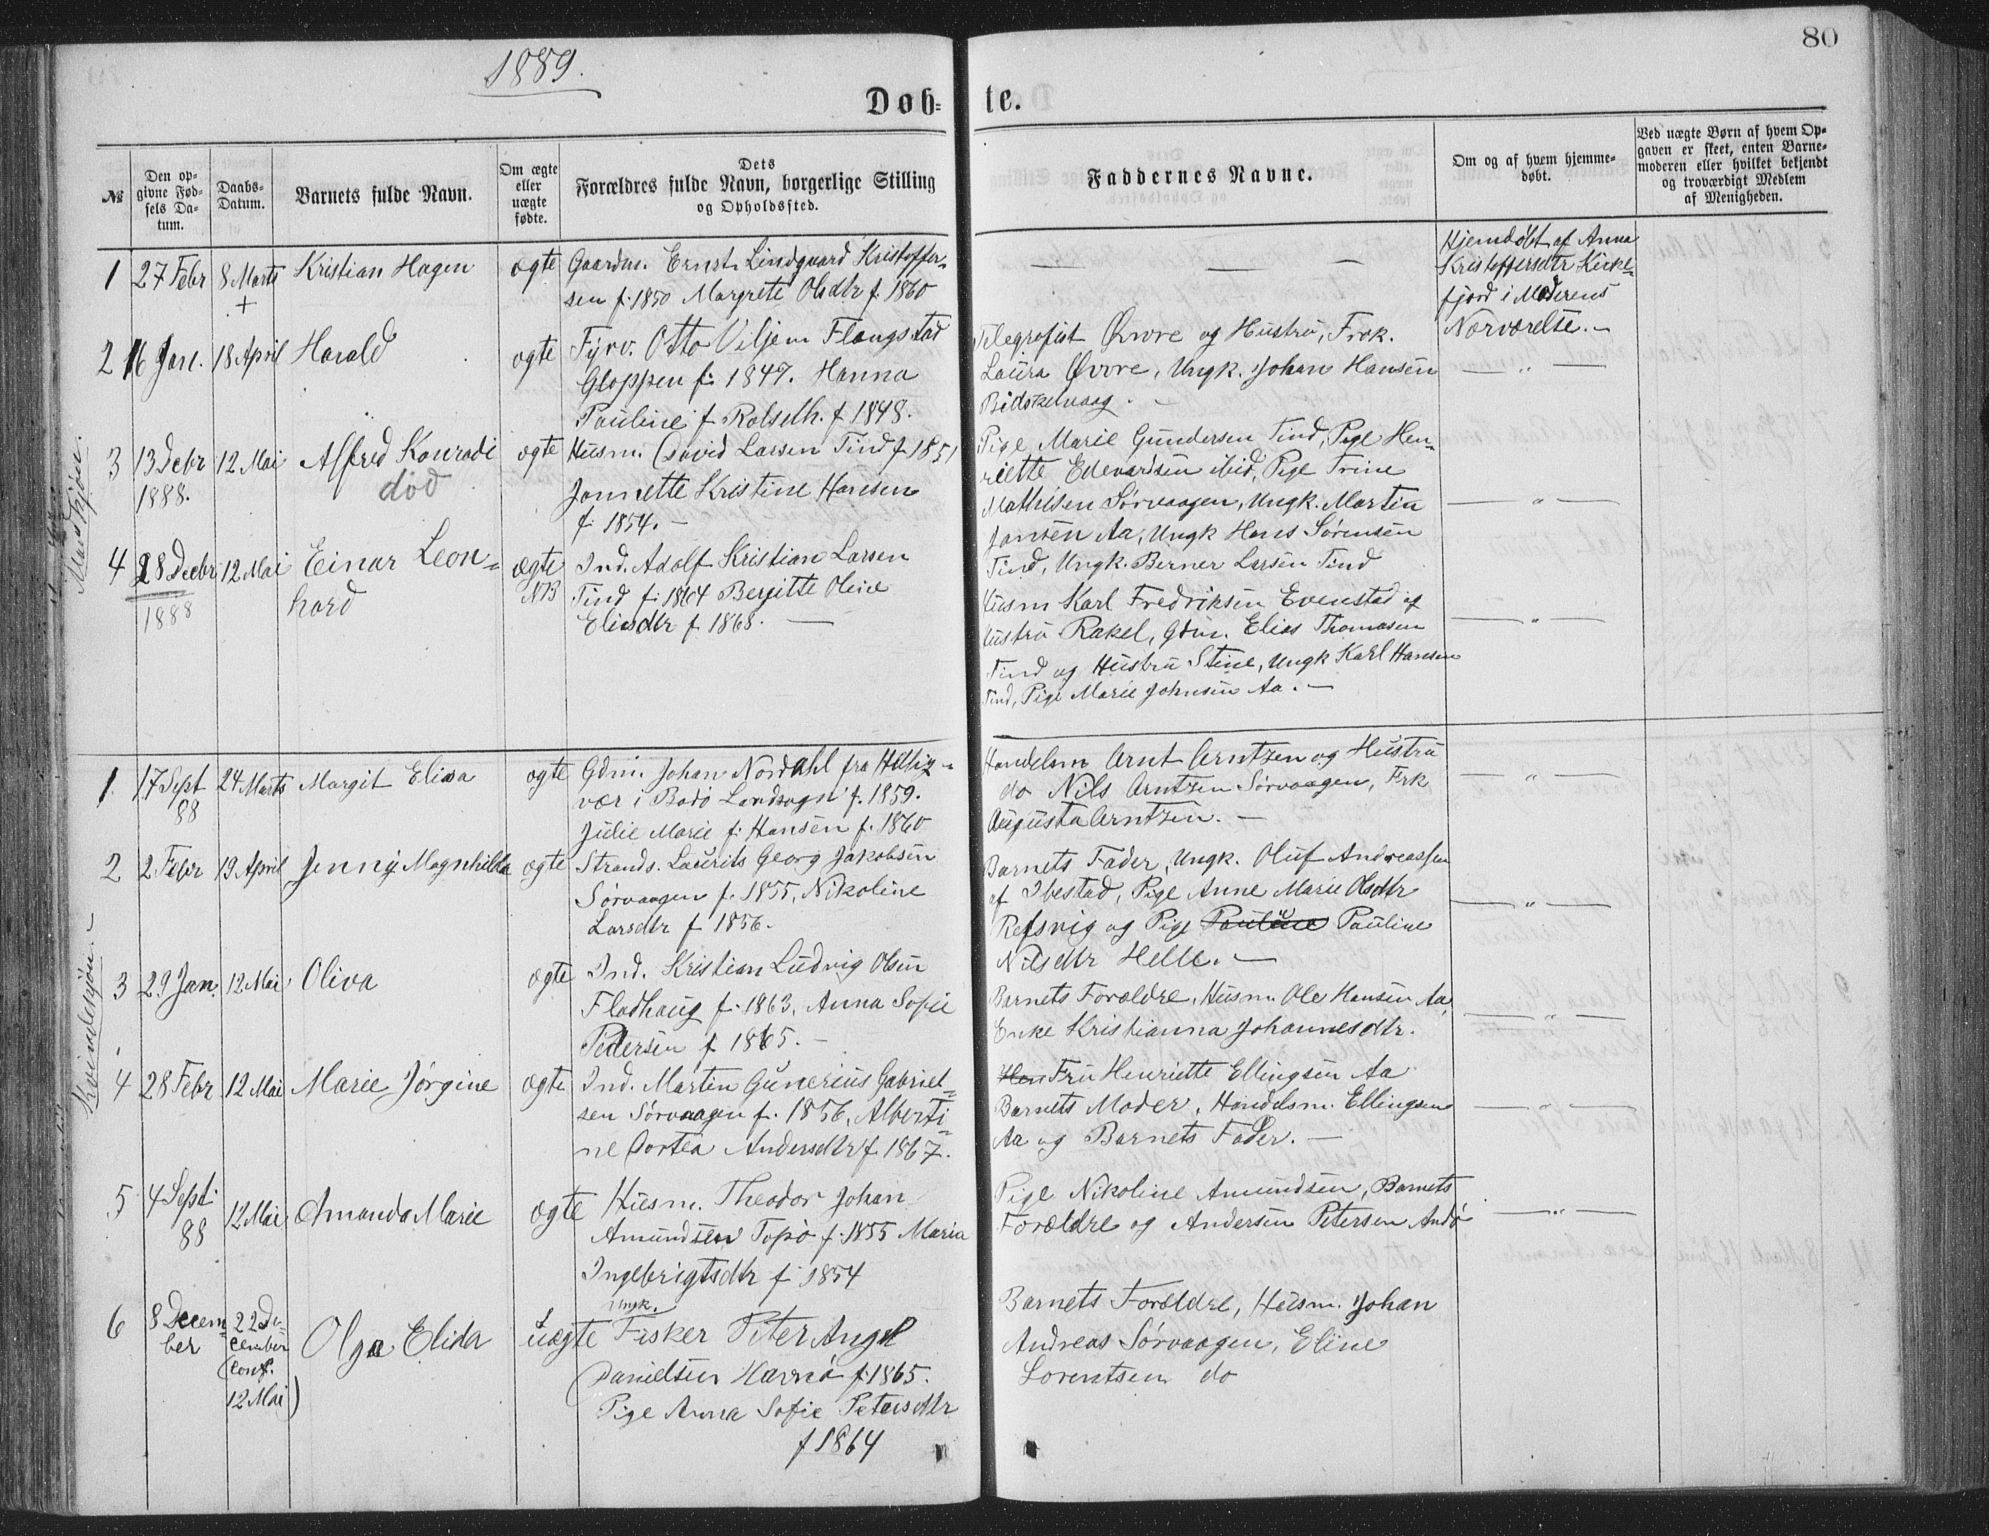 80
1889.
Døb- te.
№
Den op-
givne Fød-
sels Da-
tum.
Daabs-
Datum.
Barnets fulde Navn.
Om ægte
eller
uægte
fødte.
Dets
Forældres fulde Navn, borgerlige Stilling
og Opholdssted.
Faddernes Navne.
Om og af hvem hjemme-
døbt.
Ved uægte Børn af hvem Op-
gaven er skeet, enten Barne-
moderen eller hvilket bekjendt
og troværdigt Medlem
af Menigheden.
Mandkjøn.
1 27 Febr 8 Marts Kristian Hagen ægte
+
Gaardm. Ernst Lindgaard Kristoffer-
sen f. 1850 Margrete Olsdtr f. 1860
— — —
Hjemdøbt af Anna
Kristoffersdtr Kirke-
fjord i Moderens
Nærværelse. –
2 16 Jan. 18 April Harald ægte
Fyrv. Otto Viljem Flangstad
Gloppen f: 1847. Hanna
Pauline f. Rolselh. f 1848.
Telegrafist Øvre og Hustru, Frk.
Laura Øvre, Ungk. Johan Hansen
— " —
3 13 Decbr 12 Mai Alfred Konradi ægte
1888. död
Husm. David Larsen Tind f. 1851
Jannette Kristine Hansen
f. 1854. –
Pige Marie Gundersen Tind, Pige Hen-
riette Edevardsen ibid, Pige Trine
Mathisen Sørvaagen, Ungk. Martin
Jansen Aa, Ungk Hans Sørensen
Tind, Ungk. Berner Larsen Tind
— " —
4 28 Decbr 12 Mai Einar Leon- ægte
1888 hard NB
Ind. Adolf Kristian Larsen
Tind f. 1864 Bergitte Oline
Eliasdtr f. 1868. —
Husm Karl Fredriksen Evenstad og
Hustru Rakel, Gdm. Elias Thomasen
Tind og Hustru Stine, Ungk Karl Hansen
Tind, Pige Marie Johnsen Aa. –
— " —
Kvindekjøn. –
1 17 Sept 24 Marts Margit Elisa ægte
88
Gdm. Johan Nordahl fra Hellig-
vær i Bodø Landsogn f. 1859.
Julie Marie f. Hansen f. 1860
Handelsm Arnt Arntzen og Hustru
do Nils Arntzen Sørvaagen, Frk
Augusta Arntzen. –
— " —
2 2 Febr 19 April Jenny Magnhilda ægte
Strands. Laurits Georg Jakobsen
Sørvaagen f. 1855, Nikoline
Larsdtr f 1856.
Barnets Fader, Ungk. Oluf Andreassen
af Ibestad, Pige Anne Marie Olsdtr
Refsvig og Pige Pauline Pauline
Nilsdtr Helle. –
— " —
3 29 Jan. 12 Mai Oliva ægte
Ind. Kristian Ludvig Olsen
Fladhaug f. 1863, Anna Sofie
Pedersen f 1865. –
Barnets Forældre, Husm. Ole Hansen Aa,
Enke Kristianna Johannesdtr.
— " —
4 28 Febr 12 Mai Marie Jørgine ægte
Ind. Marten Gunerius Gabriel-
sen Sørvaagen f. 1856, Alberti-
ne Dortea Andersdtr f 1867.
Hen Fru Henriette Ellingsen Aa
Barnets Moder, Handelsm. Ellingsen
Aa og Barnets Fader. –
— " —
5 4 Sept 12 Mai Amanda Marie ægte
88
Husm. Theodor Johan
Amundsen Topø f. 1855 Maria
Ingebrigtsdtr f 1854
Pige Nikoline Amundsen, Barnets
Forældre og Andersen Petersen Andø
— " —
6 8 Decem- 22 De- Olga Elida uægte
ber cember
(conf.
12 Mai)
Ungk.
Fisker Peter Angel
Danielsen Havnø f. 1865.
Pige Anna Sofie Petersdtr
f 1864
Barnets Forældre, Husm. Johan
Andreas Sørvaagen, Eline
Lorentsen do